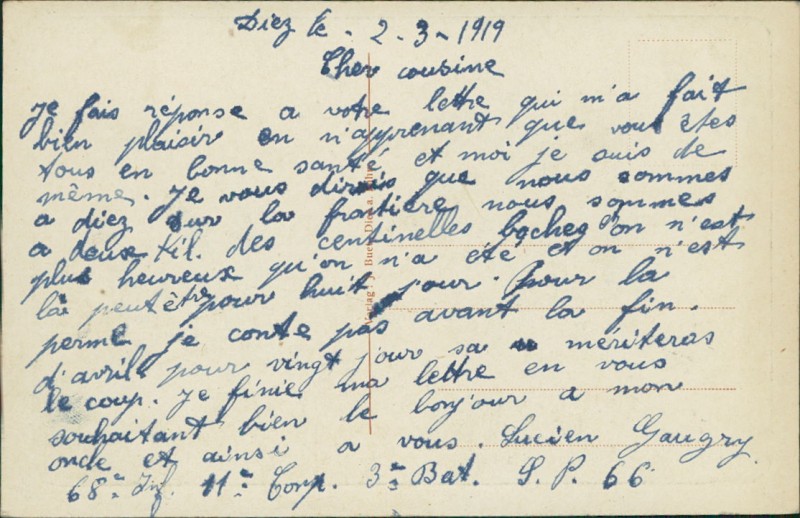 Diez le - 2 - 3 - 1919
Cher cousine
Je fais réponse a votre lettre qui m'a fait
bien plaisir en n'apprenant que vous êtes
tous en bonne santé et moi je suis de
même. Je vous dirais que nous sommes
a diez sur la frontière nous sommes
a deux Kil. des centinelles boches on n'est
plus heureux qu'on n'a été et on n'est
la peutêtre pour huit jour. Pour la
perme je conte pas avant la fin.
d'avril pour vingt jour sa mériteras
le coup. Je finie ma lettre en vous
souhaitant bien le bonjour a mon
oncle et ainsi a vous. Lucien Gaugry.
68e Inf. 11e Comp. 3e Bat. S. P. 66